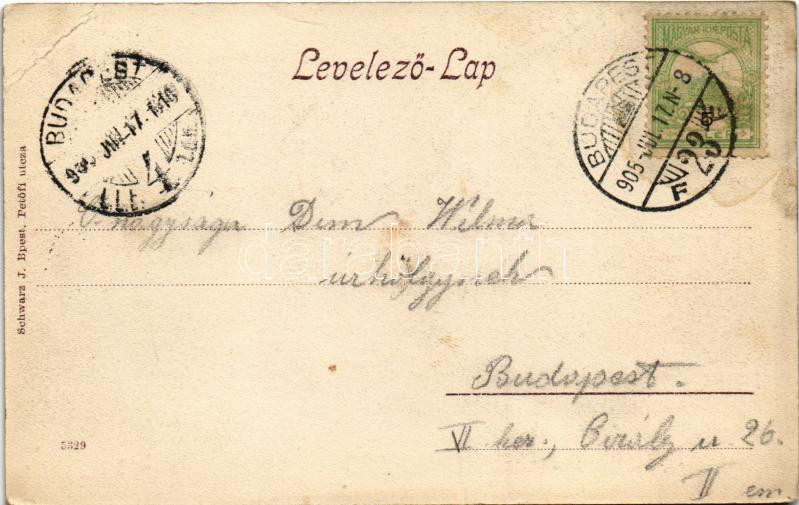 Levelező-Lap
MAGYAR KIR. POSTA
BUDAPEST
905 JUL. 17. N 8
F 23
BUDAPEST
905 JUL 17.
4
Ő nagysága Dem Wilma
úrhölgynek
Budapest.
VI ker., Király u 26.
II em
Schwarz J. Bpest. Petőfi utcza
5329
darabanth